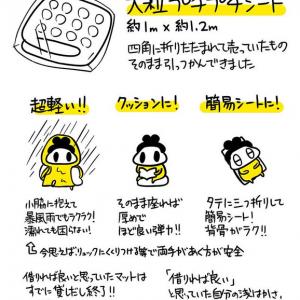 大粒プチプチシート
約1m×約1.2m
四角に折りたたまれて売っていたもの
そのまま引っつかんできました
超軽い!!
クッションに!
簡易シートに!
小脇に抱えて
暴風雨でもラクラク!
濡れても困らない!
そのまま座れば
厚めで
ほど良い弾力!!
タテに三つ折りして
簡易シート!
背骨がラク!!
今思えばリュックにくくりつける等で両手があく方が安全
借りれば良いと思っていたマットは
すでに貸し出し終了!!
「借りれば良い」
と思っていた自分の浅はかさ。